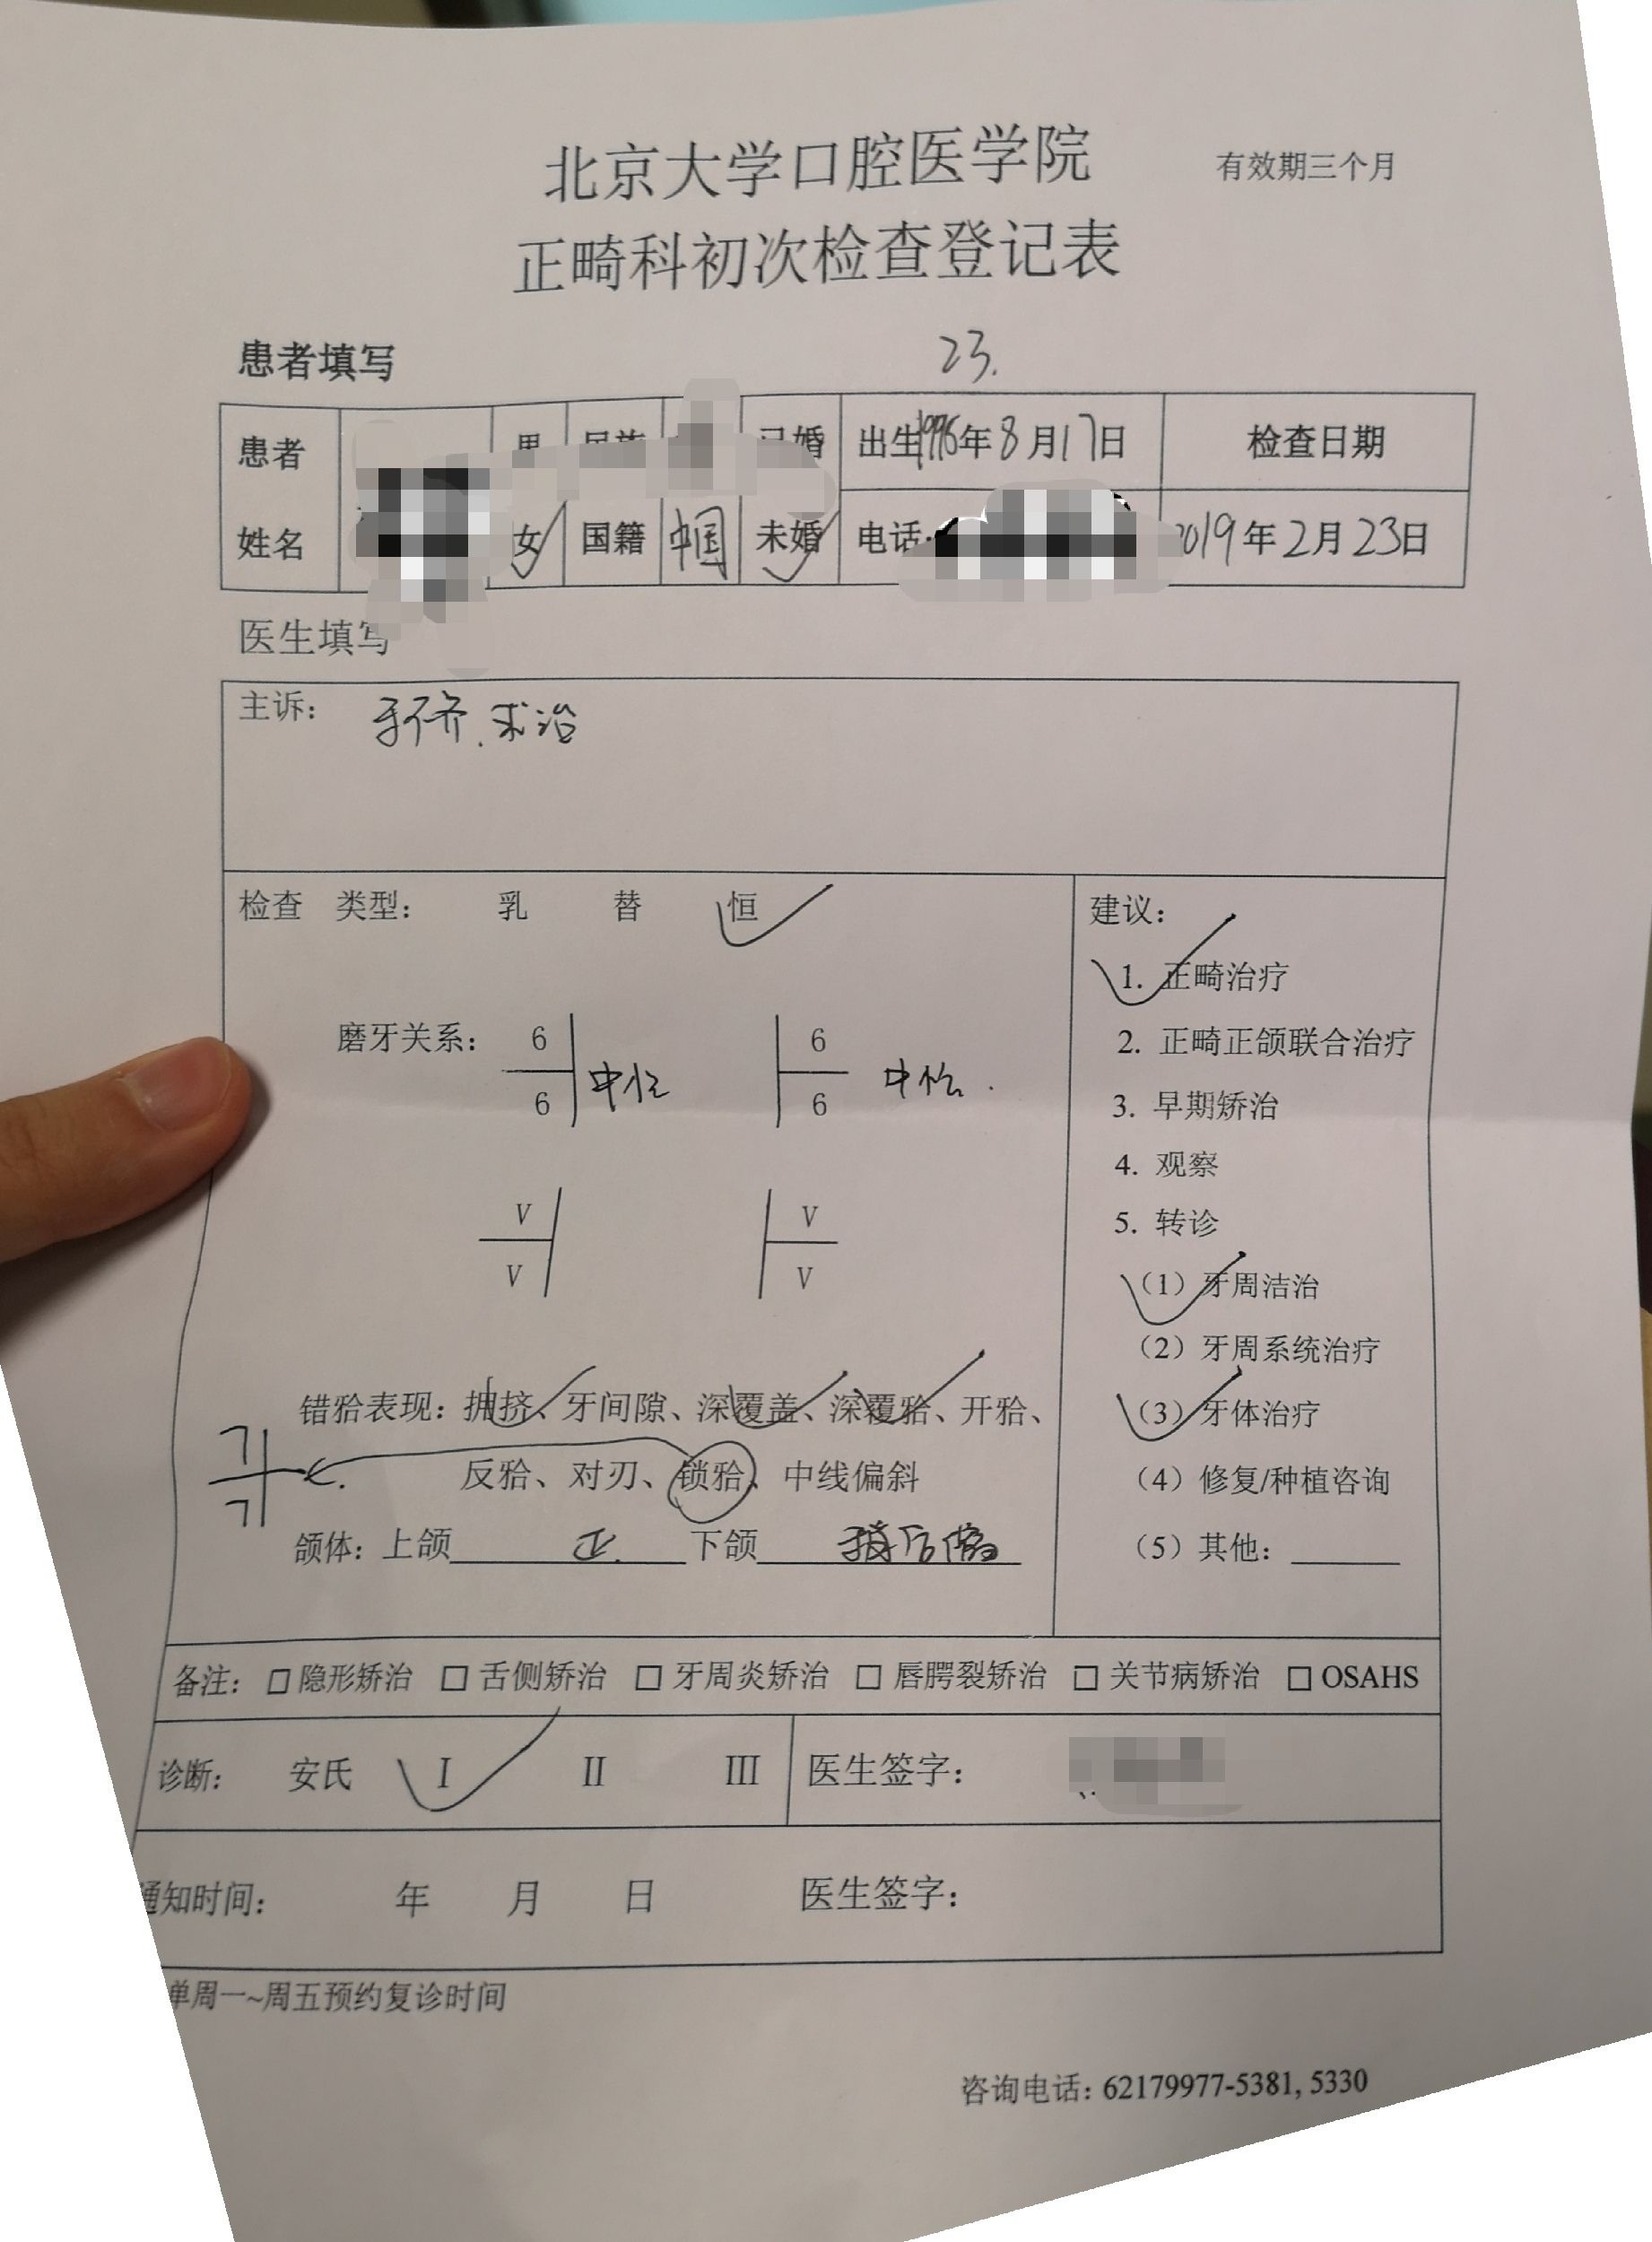 北京大学口腔医学院 有效期三个月
正畸科初次检查登记表
患者填写 23.
患者 男 民族 已婚 出生1996年8月17日 检查日期
姓名 女 国籍 中国 未婚 电话: 2019年2月23日
医生填写
主诉: 牙不齐.求治
检查 类型: 乳 替 恒
磨牙关系: 6 6 中性 6 6 中性.
V V V V
错𬌗表现: 拥挤、牙间隙、深覆盖、深覆𬌗、开𬌗、
7 7
反𬌗、对刃、锁𬌗、中线偏斜
颌体: 上颌 正. 下颌 后缩
建议:
1. 正畸治疗
2. 正畸正颌联合治疗
3. 早期矫治
4. 观察
5. 转诊
(1) 牙周洁治
(2) 牙周系统治疗
(3) 牙体治疗
(4) 修复/种植咨询
(5) 其他:
备注: □ 隐形矫治 □ 舌侧矫治 □ 牙周炎矫治 □ 唇腭裂矫治 □ 关节病矫治 □ OSAHS
诊断: 安氏 I II III 医生签字:
通知时间: 年 月 日 医生签字:
单周一~周五预约复诊时间
咨询电话: 62179977-5381, 5330